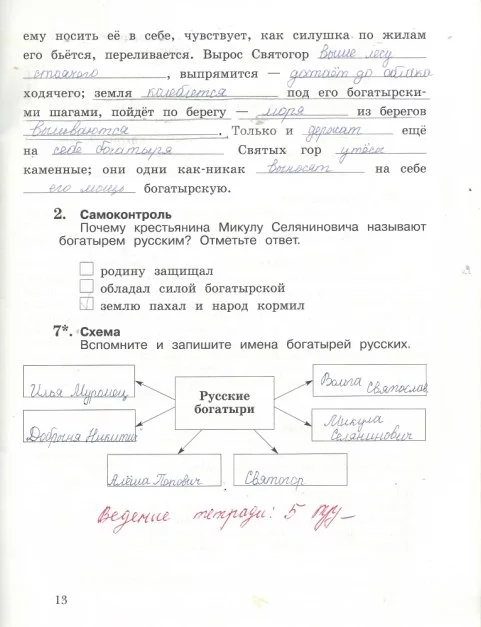 ему носить её в себе, чувствует, как силушка по жилам
его бьётся, переливается. Вырос Святогор выше лесу
стоячего, выпрямится — достаёт до облака
ходячего; земля колеблется под его богатырски-
ми шагами, пойдёт по берегу — моря из берегов
выливаются. Только и держат ещё
на себе богатыря Святых гор утёсы
каменные; они одни как-никак выносят на себе
его мощь богатырскую.
2. Самоконтроль
Почему крестьянина Микулу Селяниновича называют
богатырем русским? Отметьте ответ.
родину защищал
обладал силой богатырской
землю пахал и народ кормил
7*. Схема
Вспомните и запишите имена богатырей русских.
Илья Муромец
Русские
богатыри
Вольга Святослав
Добрыня Никитич
Микула
Селянинович
Алёша Попович
Святогор
Ведение тетради: 5
13